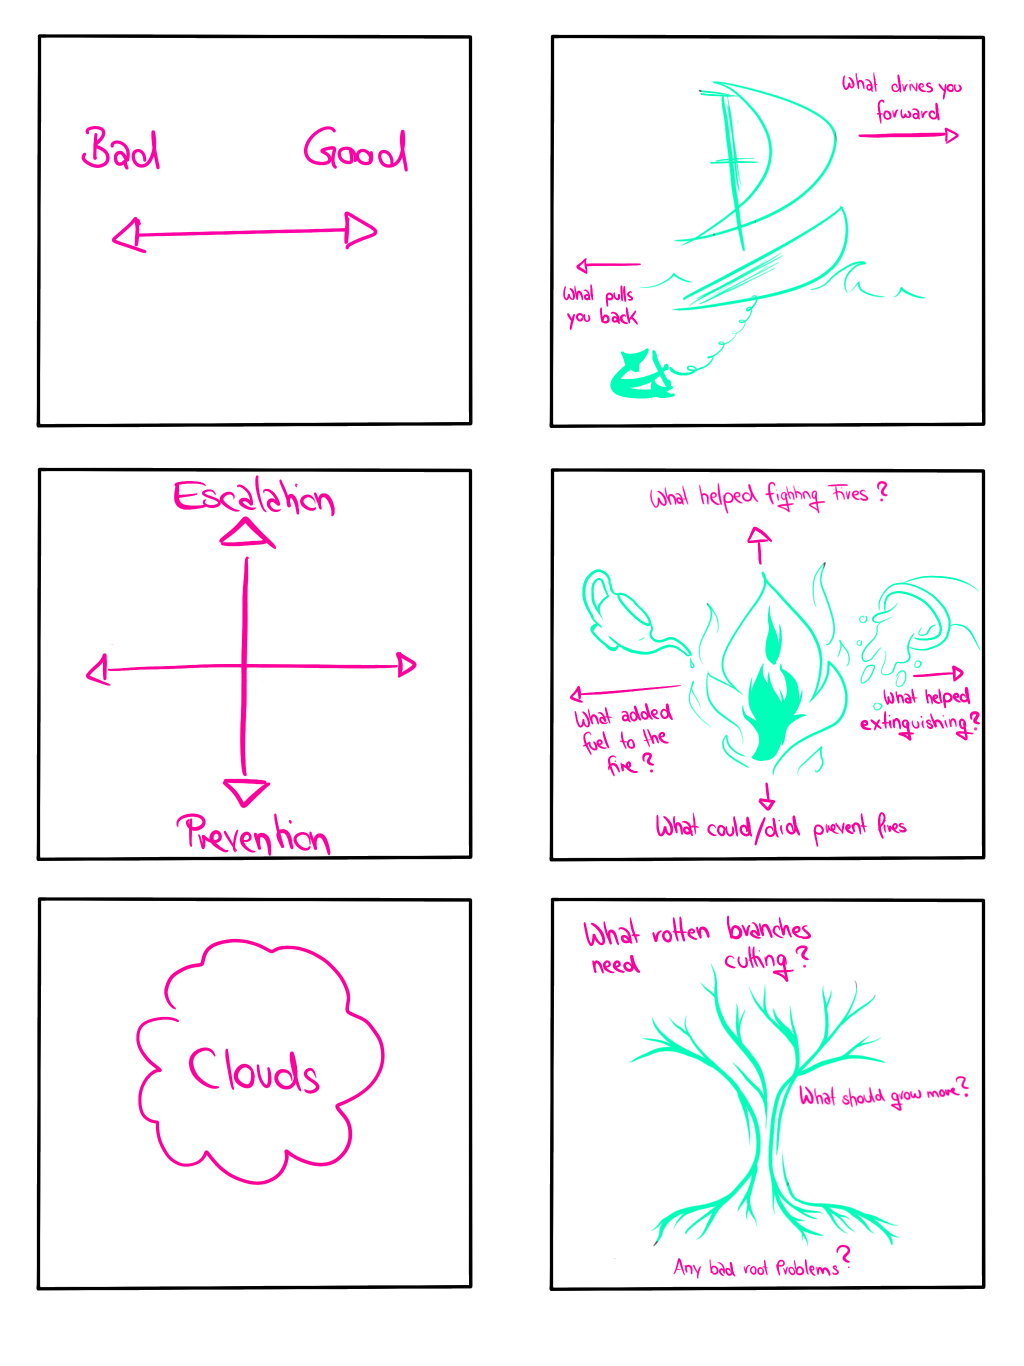 Bad Good
What drives you
forward
What pulls
you back
Escalation
Prevention
What helped fighting Fires?
What added
fuel to the
fire?
What helped
extinguishing?
What could/did prevent fires
Clouds
What rotten branches
need cutting?
What should grow more?
Any bad root Problems?